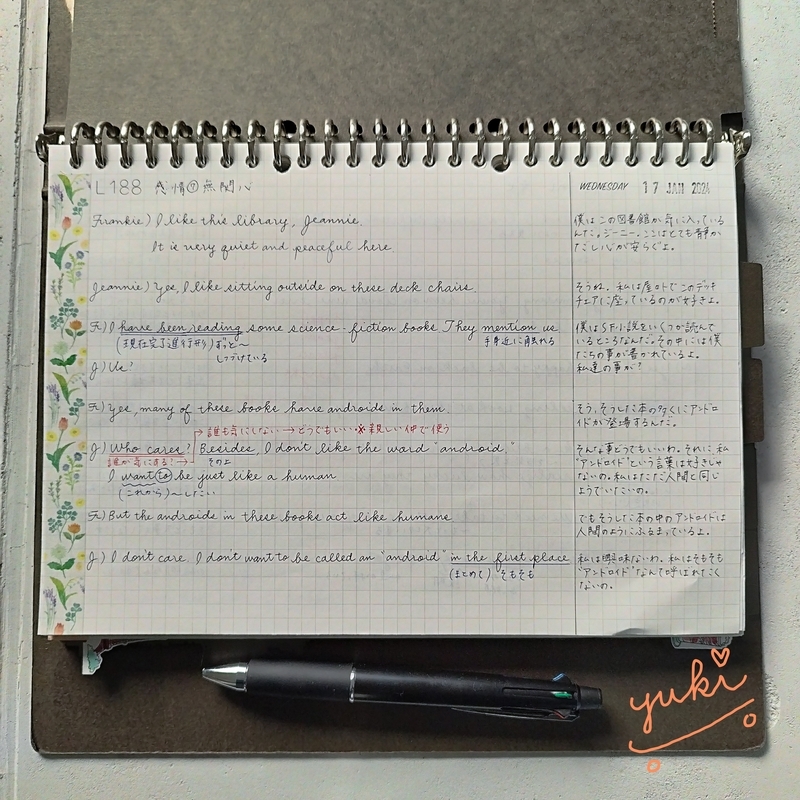 L188 感情⑦無関心
WEDNESDAY 17 JAN 2024
Frankie) I like this library, Jeannie.
It is very quiet and peaceful here.
僕はこの図書館が気に入っている
んだ。ジーニー。ここはとても静か
だし心が安らぐよ。
Jeannie) Yes, I like sitting outside on these deck chairs.
そうね。私は屋外でこのデッキ
チェアに座っているのが好きよ。
F) I have been reading some science-fiction books. They mention us
(現在完了進行形) ずっと〜
しつづけている
手身近に触れる
J) Us?
僕はSF小説をいくつか読んで
いるところなんだ。その中には僕
たちの事が書かれているよ。
私達の事か?
F) Yes, many of these books have androids in them.
そう、そうした本の多くにアンドロ
イドが登場するんだ。
→誰も気にしない→どうでもいい ※親しい仲で使う
J) Who cares? Besides, I don't like the word "android"
誰が気にする!→
その上
I want to be just like a human
(これから)〜したい
そんな事どうでもいいわ。それに、私
"アンドロイド"という言葉は好きじゃ
ないの。私はただ人間と同じ
ようでいたいの。
F) But the androids in these books act like humans
でもそうした本の中のアンドロイドは
人間のようにふるまっているよ。
J) I don't care. I don't want to be called an "android" in the first place
(まとめて) そもそも
私は興味ないわ。私はそもそも
"アンドロイド"なんて呼ばれたく
ないの。
yuki